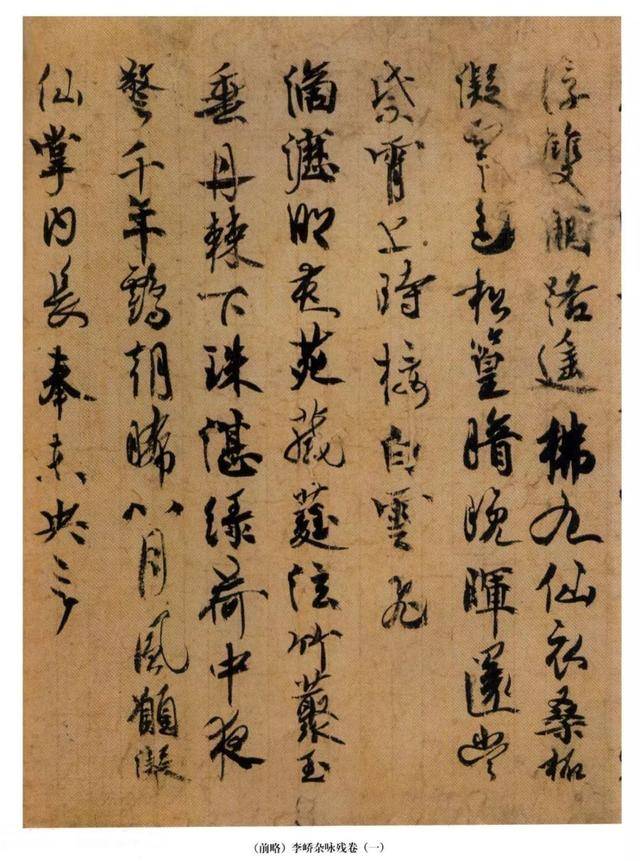 浮雙闕路遥拂九仙衣桑柘
凝寒色松篁暗晚暉還當
紫霄上時接白雲飛
滴瀝明苑葳蕤泫竹叢玉
垂丹棘下珠湛緑荷中夜
警千年鶴朝晞八月風願凝
仙掌内長奉未央宫
(前略)李峤杂咏残卷(一)